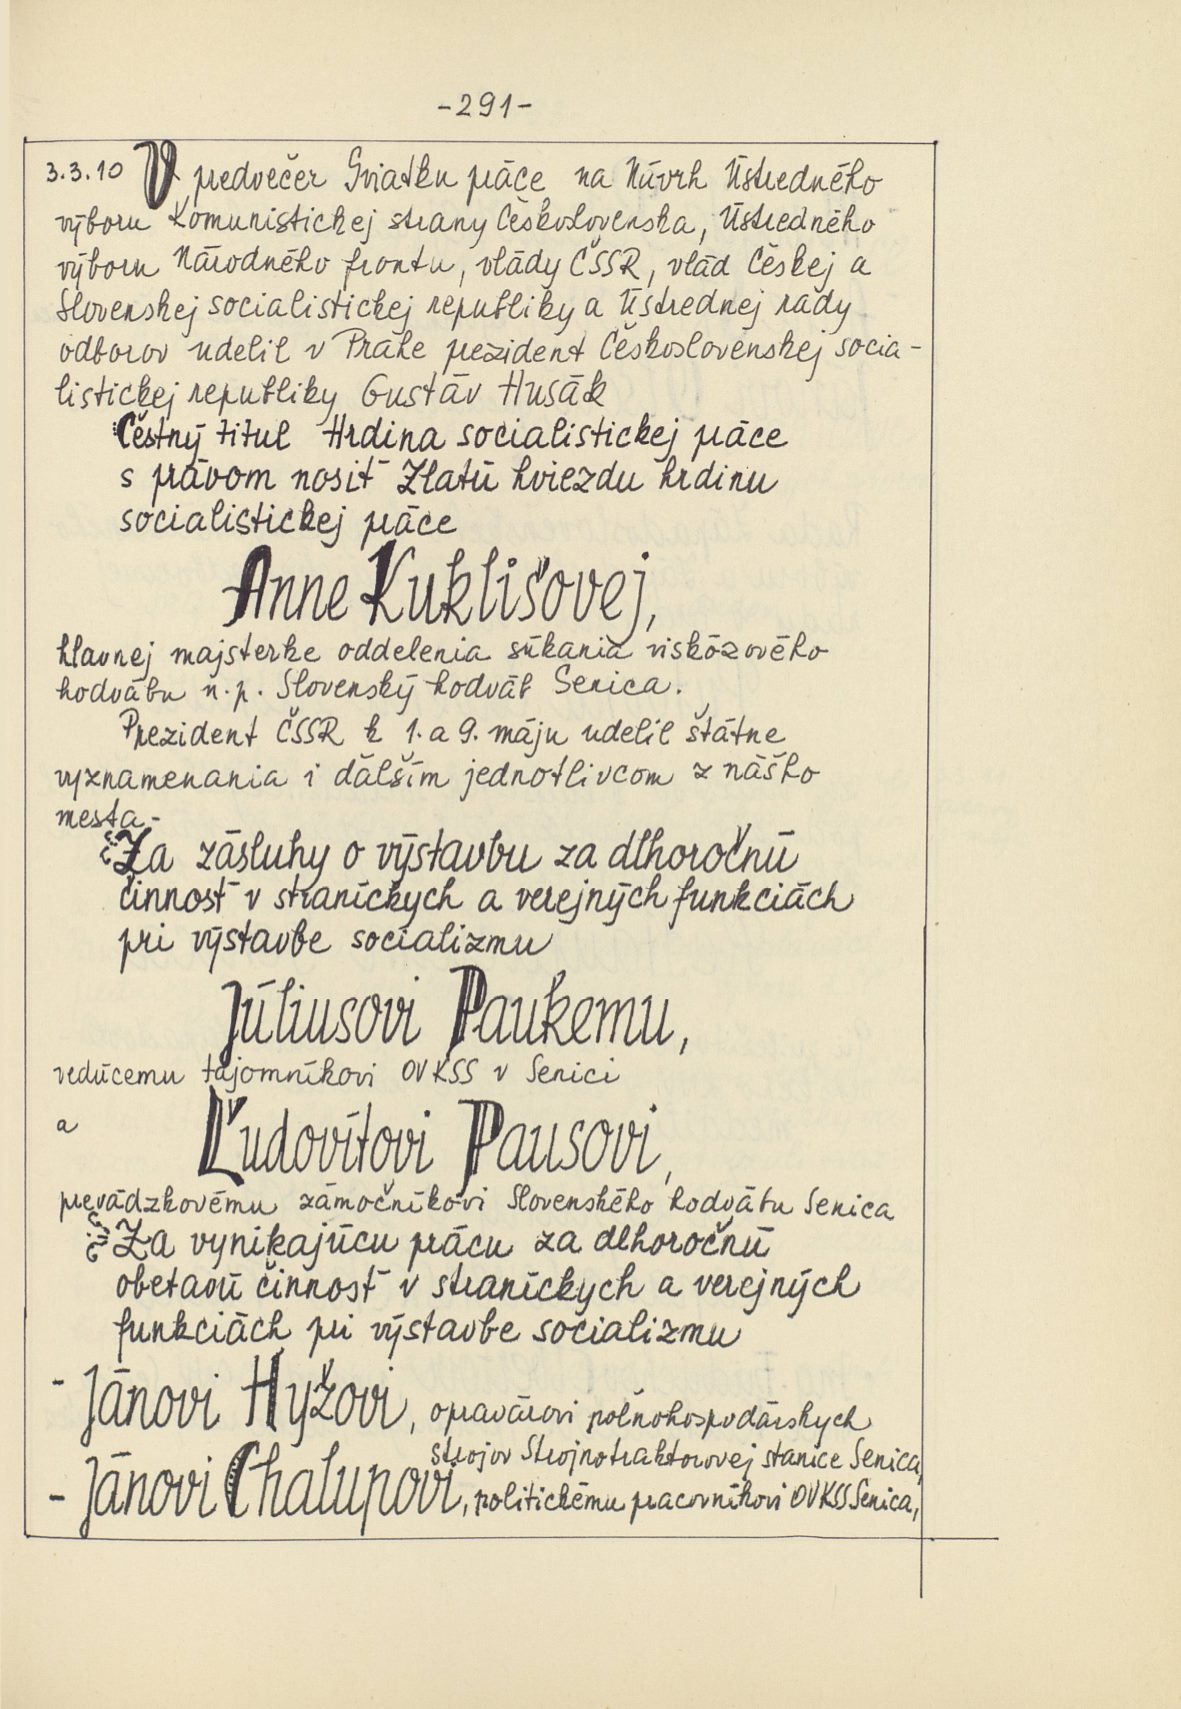 -291-
3.3.10 V predvečer Sviatku práce na Návrh Ústredného
výboru Komunistickej strany Československa, Ústredného
výboru Národného frontu, vlády ČSSR, vlád Českej a
Slovenskej socialistickej republiky a Ústrednej rady
odborov udelil v Prahe prezident Československej socia-
listickej republiky Gustáv Husák
Čestný titul Hrdina socialistickej práce
s právom nosiť Zlatú hviezdu hrdinu
socialistickej práce
Anne Kuklišovej,
hlavnej majsterke oddelenia súkania viskózového
hodvábu n.p. Slovenský hodváb Senica.
Prezident ČSSR k 1. a 9. máju udelil štátne
vyznamenania i ďalším jednotlivcom z nášho
mesta-
Za zásluhy o výstavbu za dlhoročnú
činnosť v straníckych a verejných funkciách
pri výstavbe socializmu
Júliusovi Paukemu,
vedúcemu tajomníkovi OV KSS v Senici
a Ľudovítovi Pausovi,
prevádzkovému zámočníkovi Slovenského hodvábu Senica
Za vynikajúcu prácu za dlhoročnú
obetavú činnosť v straníckych a verejných
funkciách pri výstavbe socializmu
- Jánovi Hyžovi, opravárovi poľnohospodárskych
strojov Strojnotraktorovej stanice Senica,
- Jánovi Chalupovi, politickému pracovníkovi OV KSS Senica,